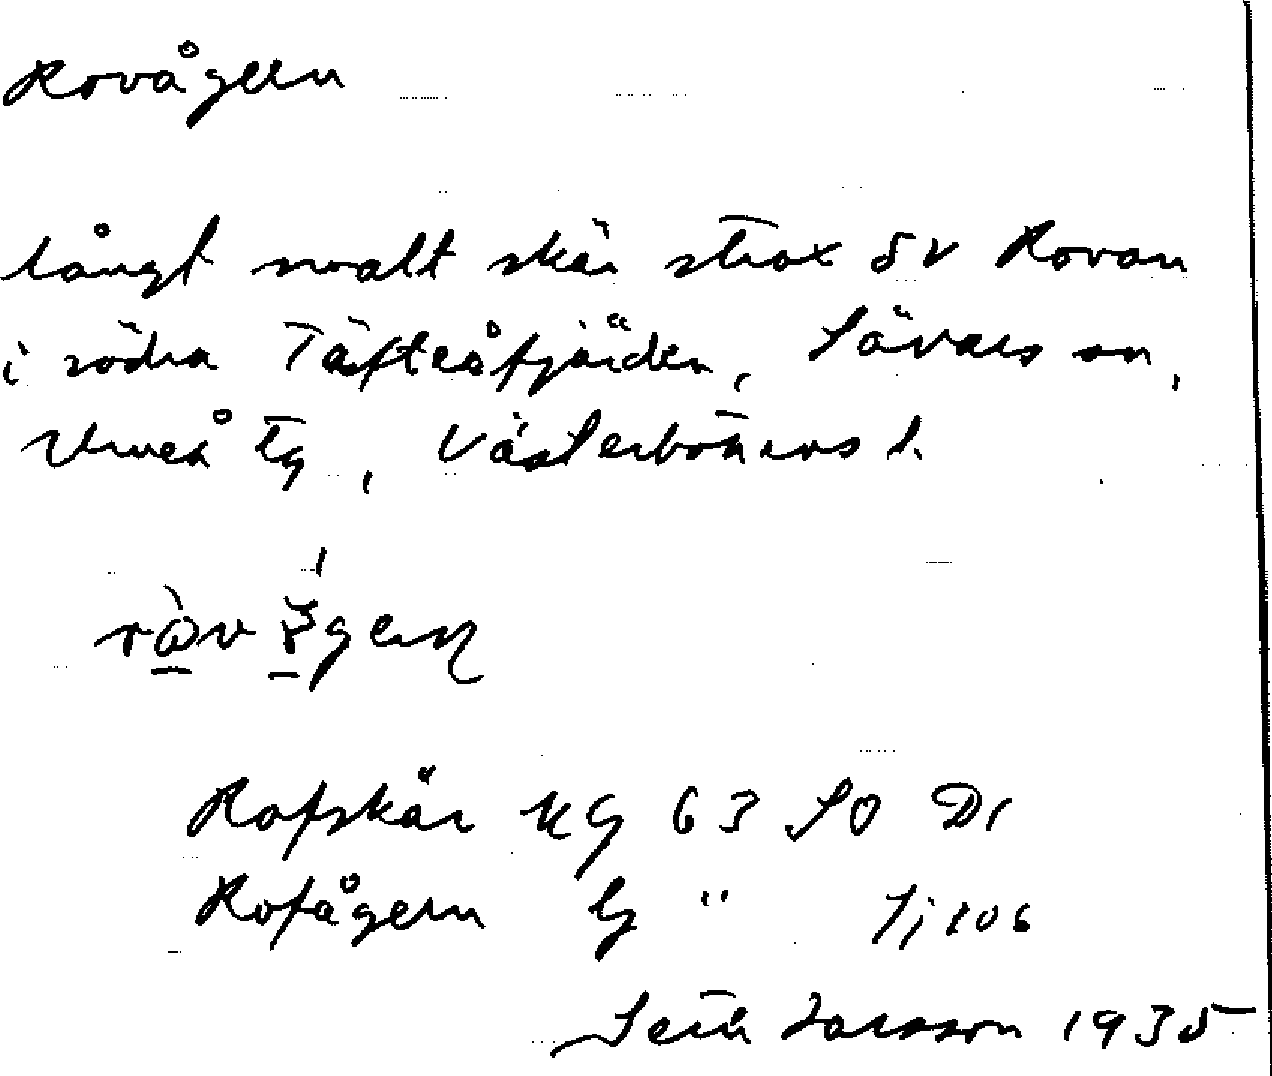 Rovågern
långt smalt skär strax SV Rovan
i södra Täfteåfjärden, Sävars sn,
Umeå tg, Västerbottens l.
Rofskär KG 63 SO Dr
Rofågern Eg " Sj 106
Larsson 1935